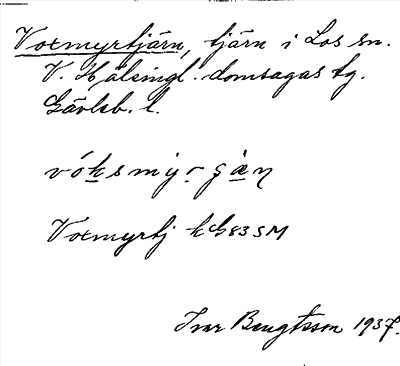 Voxmyrtjärn, tjärn i Los sn.
V. Hälsingl. domsagas tg.
Gävleb. l.
vóksmy̱r g̱à̱n
Voxmyrtj kG83SM
Ivar Bengtsson 1937.